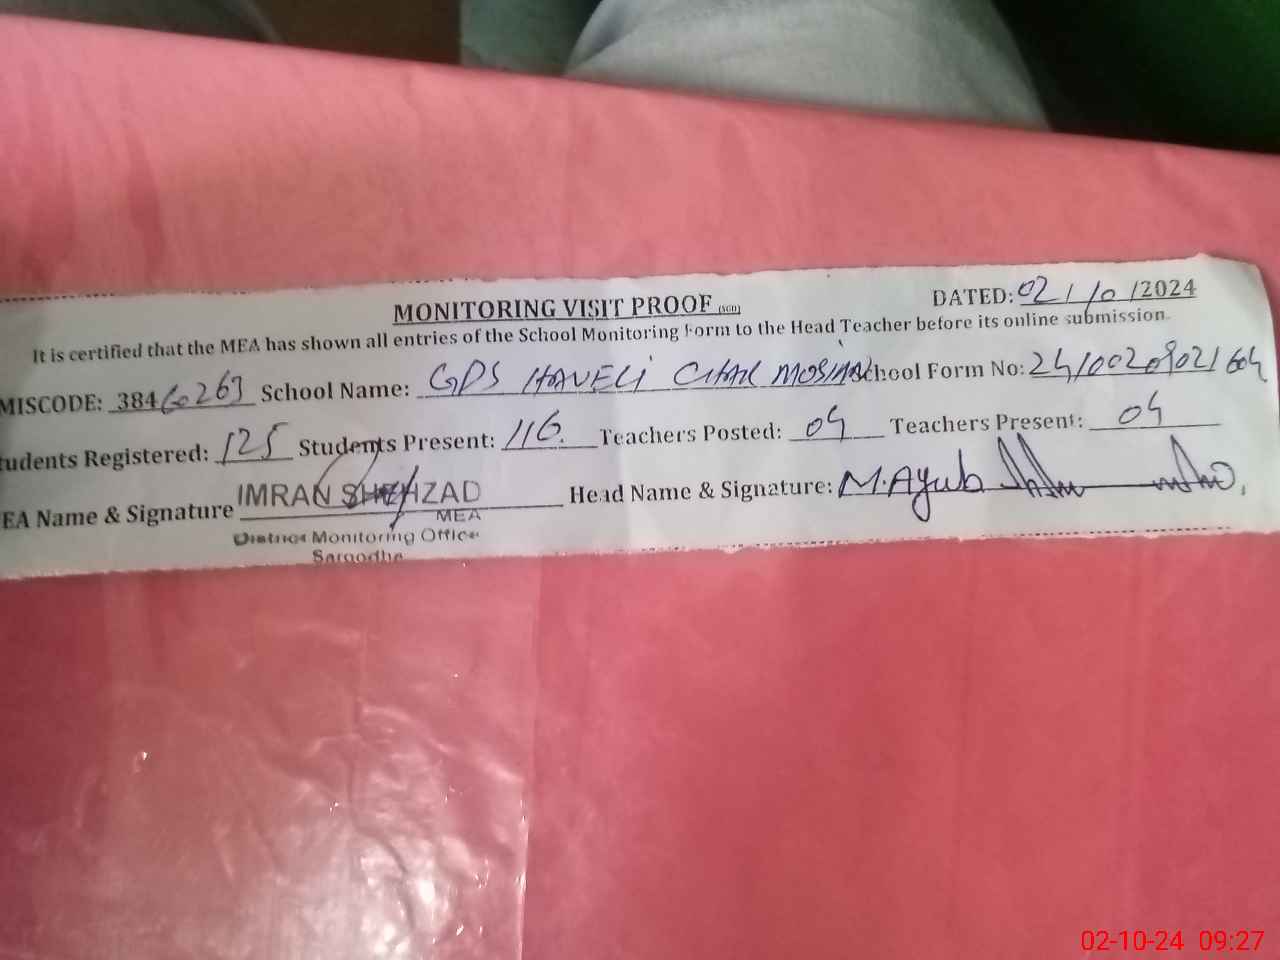 MONITORING VISIT PROOF (SED)
DATED: 02/10/2024
It is certified that the MEA has shown all entries of the School Monitoring Form to the Head Teacher before its online submission.
MISCODE: 38460263 School Name: GPS HAVELI CHAK MOSHAkhool Form No:
tudents Registered: 125 Students Present: 116. Teachers Posted: 04 Teachers Present: 04
EA Name & Signature IMRAN SHEHZAD Head Name & Signature: M.Ayub
MEA
District Monitoring Office
Sargodha
02-10-24 09:27